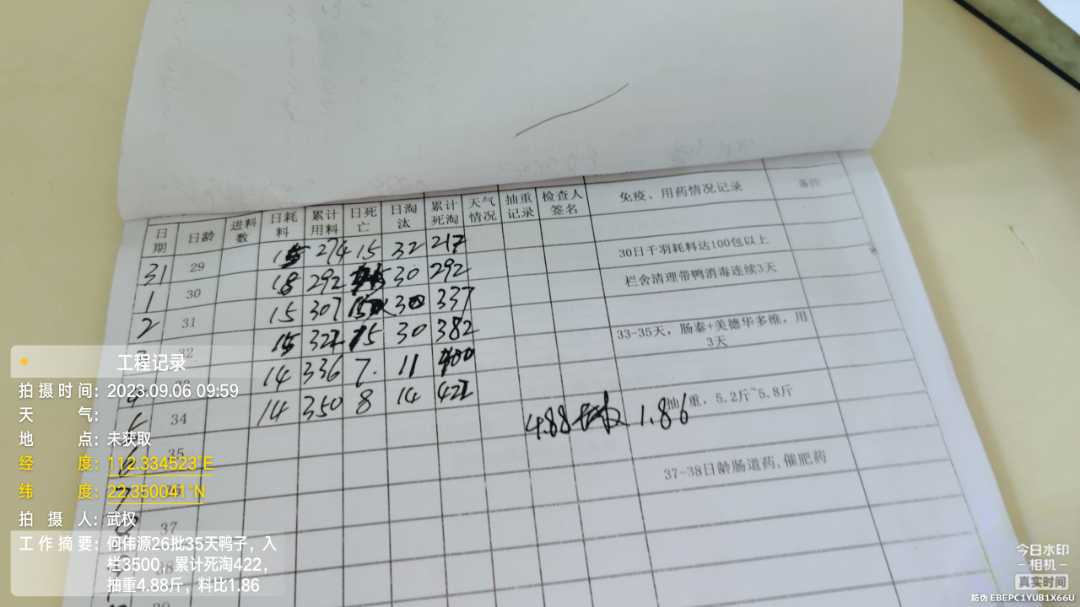 日期 日龄 进料数 日耗料 累计用料 日死亡 日淘汰 累计死淘 天气情况 抽重记录 检查人签名 免疫、用药情况记录 备注
31 29 15 274 15 32 217 30日千羽耗料达100包以上
1 30 18 292 30 292 栏舍清理带鸭消毒连续3天
2 31 15 307 15 30 337
32 15 322 15 30 382 33-35天，肠泰+美德华多维，用3天
14 336 7 11 400
34 14 350 8 14 422 抽重，5.2斤~5.8斤
4.88 1.86
35
37-38日龄肠道药,催肥药
37
工程记录
拍摄时间：2023.09.06 09:59
天气：
地点：未获取
经度：112.334523°E
纬度：22.350041°N
拍摄人：武权
工作摘要：何伟源26批35天鸭子，入
栏3500，累计死淘422，
抽重4.88斤，料比1.86
今日水印
-相机-
真实时间
防伪 EBEPC1YUB1X66U